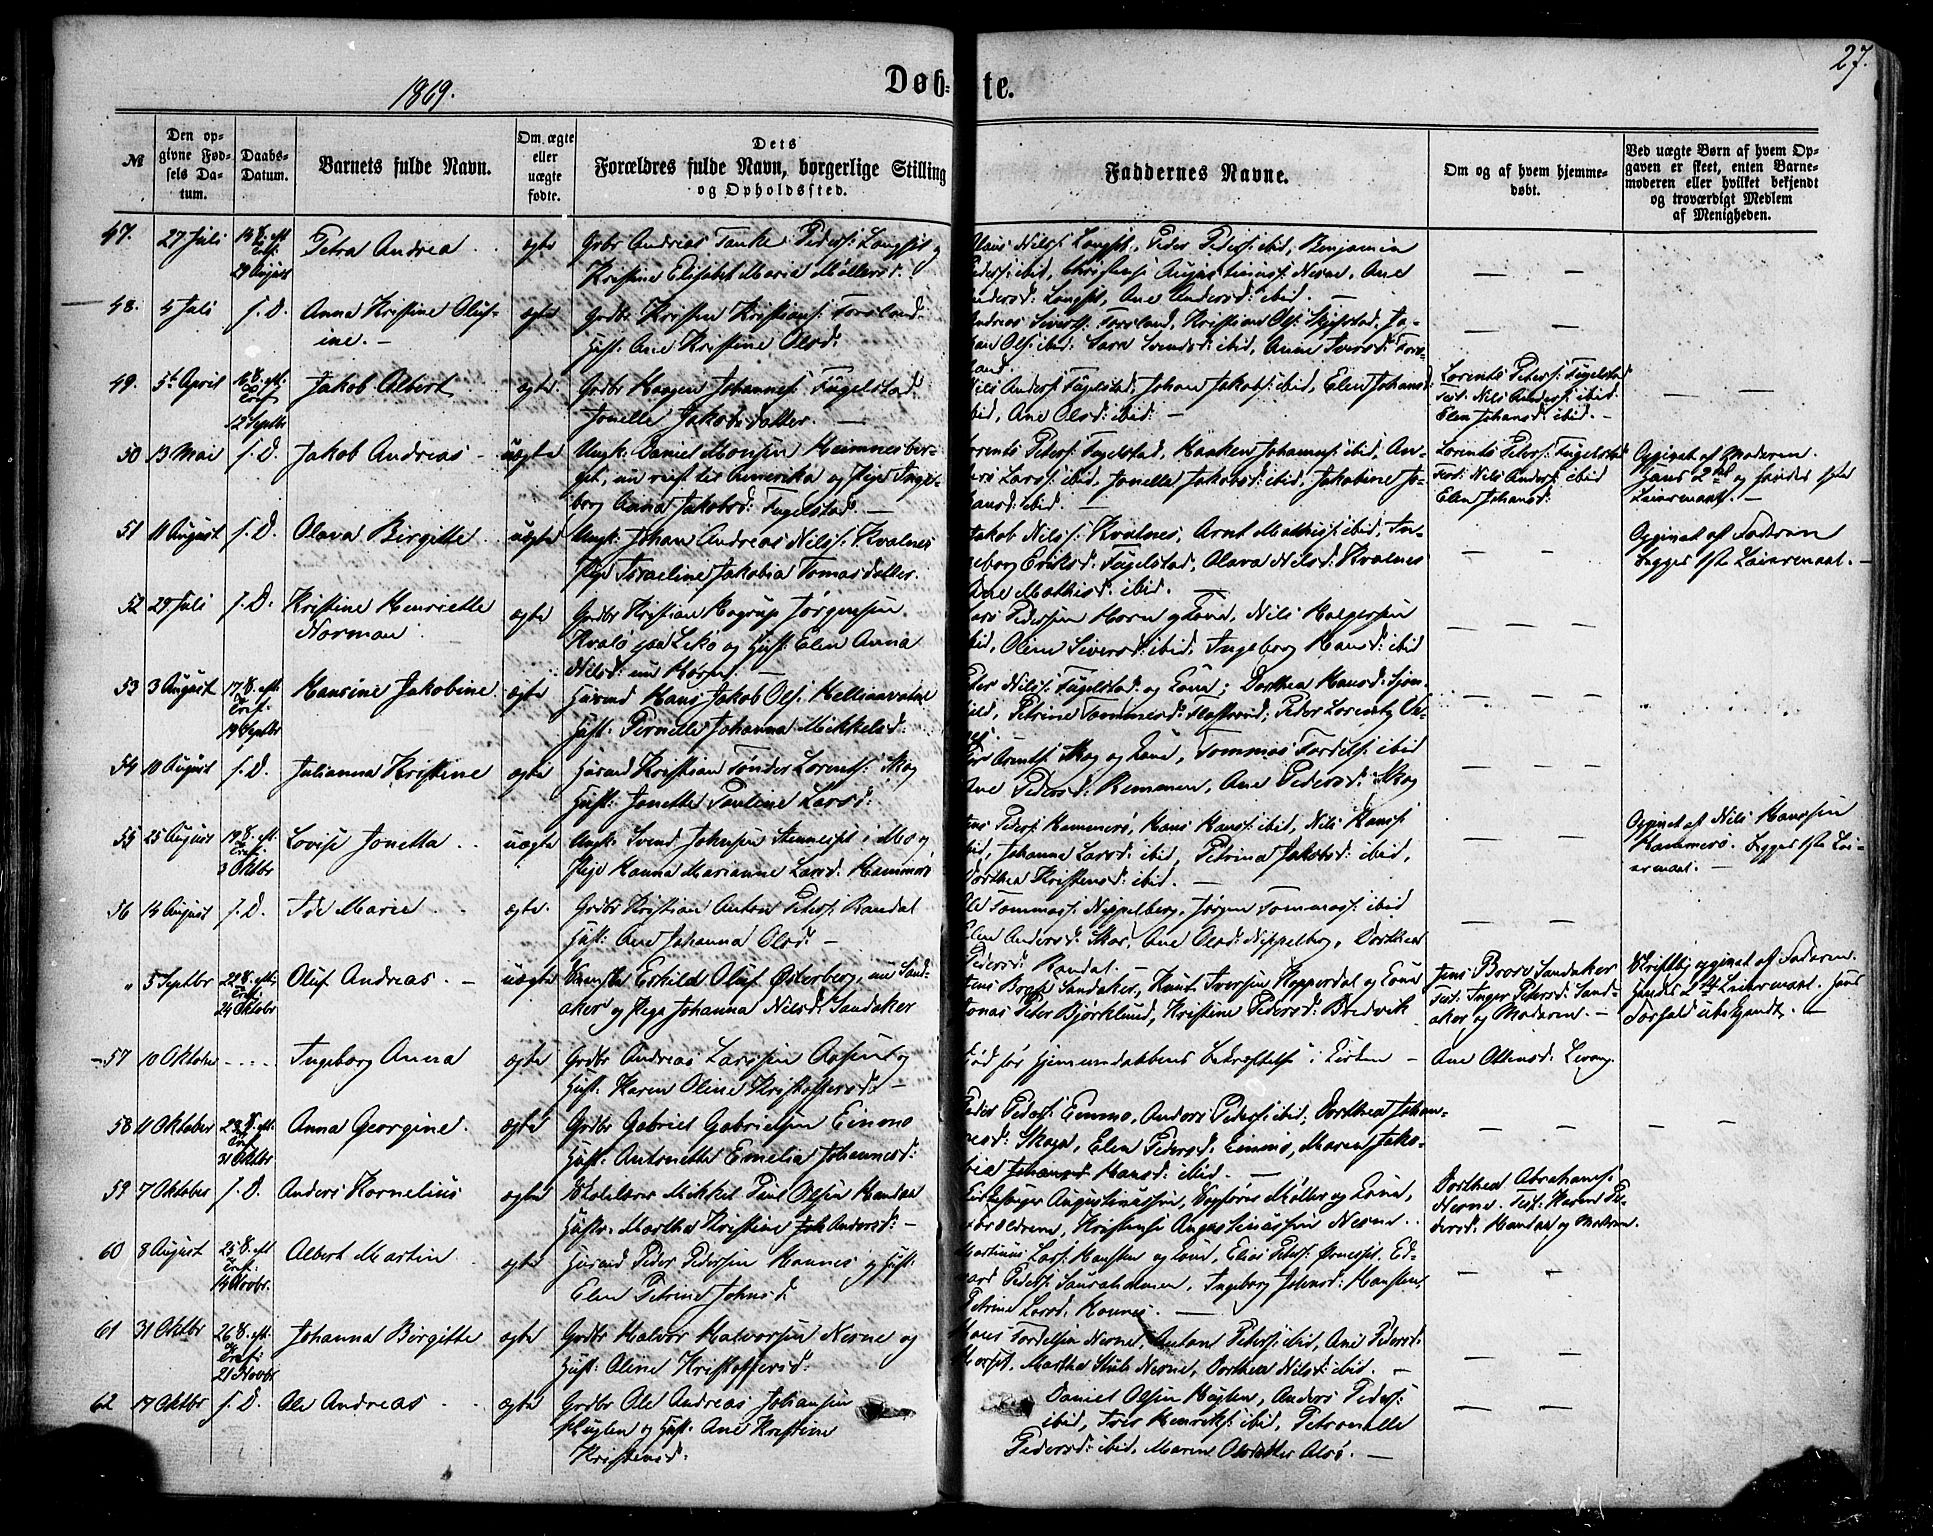 27.
1869.
Døb-te.
№
Den opgivne Fødsels Datum.
Daabs-Datum.
Barnets fulde Navn.
Om ægte eller uægte fødte.
Dets Forældres fulde Navn, borgerlige Stilling og Opholdssted.
Faddernes Navne.
Om og af hvem hjemmedøbt.
Ved uægte Børn af hvem Opgaven er skeet, enten Barnemoderen eller hvilket bekjendt og troværdigt Medlem af Menigheden.
47. 27 Juli 29 August Petra Andrea ægte Gdbr Andreas Tanke Peders: Langset og
Kristine Elisabet Maria Møllersd:
Nils: Langset, Peder Peders: ibid, Benjamin
Peders: ibid, Augustinus: Nesne, Ane
Andersd: Langset, Ane Andersd: ibid. —
48. 5 Juli s. D. Anna Kristine Olufine. — ægte Gdbr Kristen Kristians: Forsland
Hust: Ane Kristine Olsd:
Andreas Siverts: Forsland, Kristian Ols: ibid, Anne
49. 5te April 12 Septbr Jakob Albert ægte Gdbr Haagen Johannes: Fugelstad
Jonelle Jakobsdatter. —
Nils Anders: Fugelstad, Johan Jakobs: ibid, Elen Johansd:
ibid, Ane Olsd: ibid. —
Lorents Peters: Fugelstad
Test: Nils Anders: ibid
Elen Johansd: ibid. —
50 13 Mai s. D. Jakob Andreas uægte Ungk: Daniel Monsen Hemnesberget, nu reist til Amerika og Pige Ingeborg Anna Jakobsd: Fugelstad. —
Lorents Peters: Fugelstad, Haaken Johannes: ibid, Anders Lars: ibid, Jonelle Jakobsd: ibid, Jakobine Johansd: ibid.
Lorents Peters: Fugelstad
Test: Nils Anders: ibid
Elen Johansd:
Opgivet af Moderen.
Hans 2det og hendes 1ste
Leiermaal. —
51 11 August s. D. Olava Birgitte uægte Ungk: Johan Andreas Nils: Kvalnes
Pige Israeline Jakobia Tomasdatter.
Jakob Nils: Kvalnes, Arnt Mathis: ibid, Ingeborg Eriksd: Fugelstad, Olava Nilsd: Kvalnes
Ane Mathisd: ibid. —
Opgivet af Faderen
begges 1ste Leiermaal. —
52 29 Juli s. D. Kristine Henriette
Norman ægte Gdbr Kristian Hagrup Jørgensen
Kvalø paa Lekø og Hust: Elen Anna
Nilsd:
Lars Pedersen Horn og Kone, Nils Holgersen
ibid, Oline Siversd: ibid, Ingeborg Hansd: ibid
53 3 August 19 Septbr Hansine Jakobine ægte Husmd Hans Jakob Ols:
Hust: Pernelle Johanna Mikkelsd:
Peder Nils: Fugelstad og Kone; Dorthea Hansd:
Petrine Tommesd: Flostrand; Peder Lorents
54 10 August s. D. Julianna Kristine ægte Husmd Kristian Tønder Lorents: Skog
Hust: Jonette Pauline Larsd:
Arents: Skog og Kone, Tommas Fordels: ibid
Ane Pedersd: Remmen, Ane Pedersd: Skog
55 25 August 3 Oktbr Lovise Jonetta uægte Ungk: Svend Johnsen Stenneset i Mo og
Pige Hanna Marianne Larsd: Hammerø
Jens Peders: Hammerø, Hans Hans: ibid, Nils Hans:
ibid, Johanna Larsd: ibid, Petrina Jakobsd: ibid,
Dorthea Kristensd: ibid. —
Opgivet af Nils Hanssen
Hammerø. begges 1ste Leiermaal. —
56 14 August s. D. Ide Marie ægte Gdbr Kristian Anton Peters: Randal
Hust: Ane Johanna Olsd: —
Ole Tommas: Neppelberg, Jørgen Tommas: ibid
Elen Andersd: Skar, Ane Olsd: Neppelberg, Dorthea
Pedersd: Randal. —
" 5 Septbr 24 Oktobr Oluf Andreas. — uægte Eskild Oluf Østerberg, nu Sandaker og Pige Johanna Nilsd: Sandaker
Jens Sandaker, Knut Iversen Kopperdal og Kone
Jonas Peter Bjørklund, Kristine Pedersd: Bredvik
Jens Sandaker
Test: Inger Petersd: Sandaker og Moderen. —
Skriftlig opgivet af Faderen.
Hendes 2det Leiermaal. Hans
Forhold ubekjendt. —
57 10 Oktober Ingeborg Anna ægte Gdbr Andreas Larssen Aasen og
Hust: Karen Oline Kristoffersd: —
Død før Hjemmedaabens Bekræftelse i Kirken —
Ane Ottensd: Levang.
58 11 Oktober 31 Oktbr Anna Georgine ægte Gdbr Gabriel Gabrielsen Einmo
Hust: Antonette Emelia Johannesd:
Peder Peders: Einmo, Anders Peders: ibid, Dorthea Johannesd: Skogn, Elen Pedersd: Einmo, Maren Jakobia Hansd: ibid. —
59 7 Oktober s. D. Anders Kornelius ægte Skolelærer Mikkel Paul Olsen Handnes
Hust: Martha Kristine Andersd: —
Augustinussen, Møller og Kone,
Forældrene, Kristense Augustinussen Nesne.
Dorthea Abrahams:
Nesne. Test: Karen Pedersd: Handnes og Moderen.
60 8 August 14 Novbr. Albert Martin ægte Husmd Peder Pedersen Hannes og Hust:
Elen Petrine Johnsd:
Martinus Lars: og Kone, Elias Peters: Edvard Peders: Ingeborg Johnsd:
Petrine Larsd: Hannes. —
61 31 Oktbr 21 Novbr Johanna Børgitte ægte Gdbr Halvor Halvorsen Nesne og
Hust: Oline Kristoffersd:
Hans Fordelsen Nesne, Antone Peters: ibid, Ane Pedersd:
Martha Nesne, Dorthea Nilsd: ibid. —
62 17 Oktbr s. D. Ole Andreas ægte Gdbr Ole Andreas Johansen
Huglen og Hust: Ane Kristine
Kristensd:
Daniel Olsen Huglen, Anders Peders:
ibid, Iver Henriks: ibid, Petronelle
Pedersd: ibid, Maren Olsdatter Alsø. —